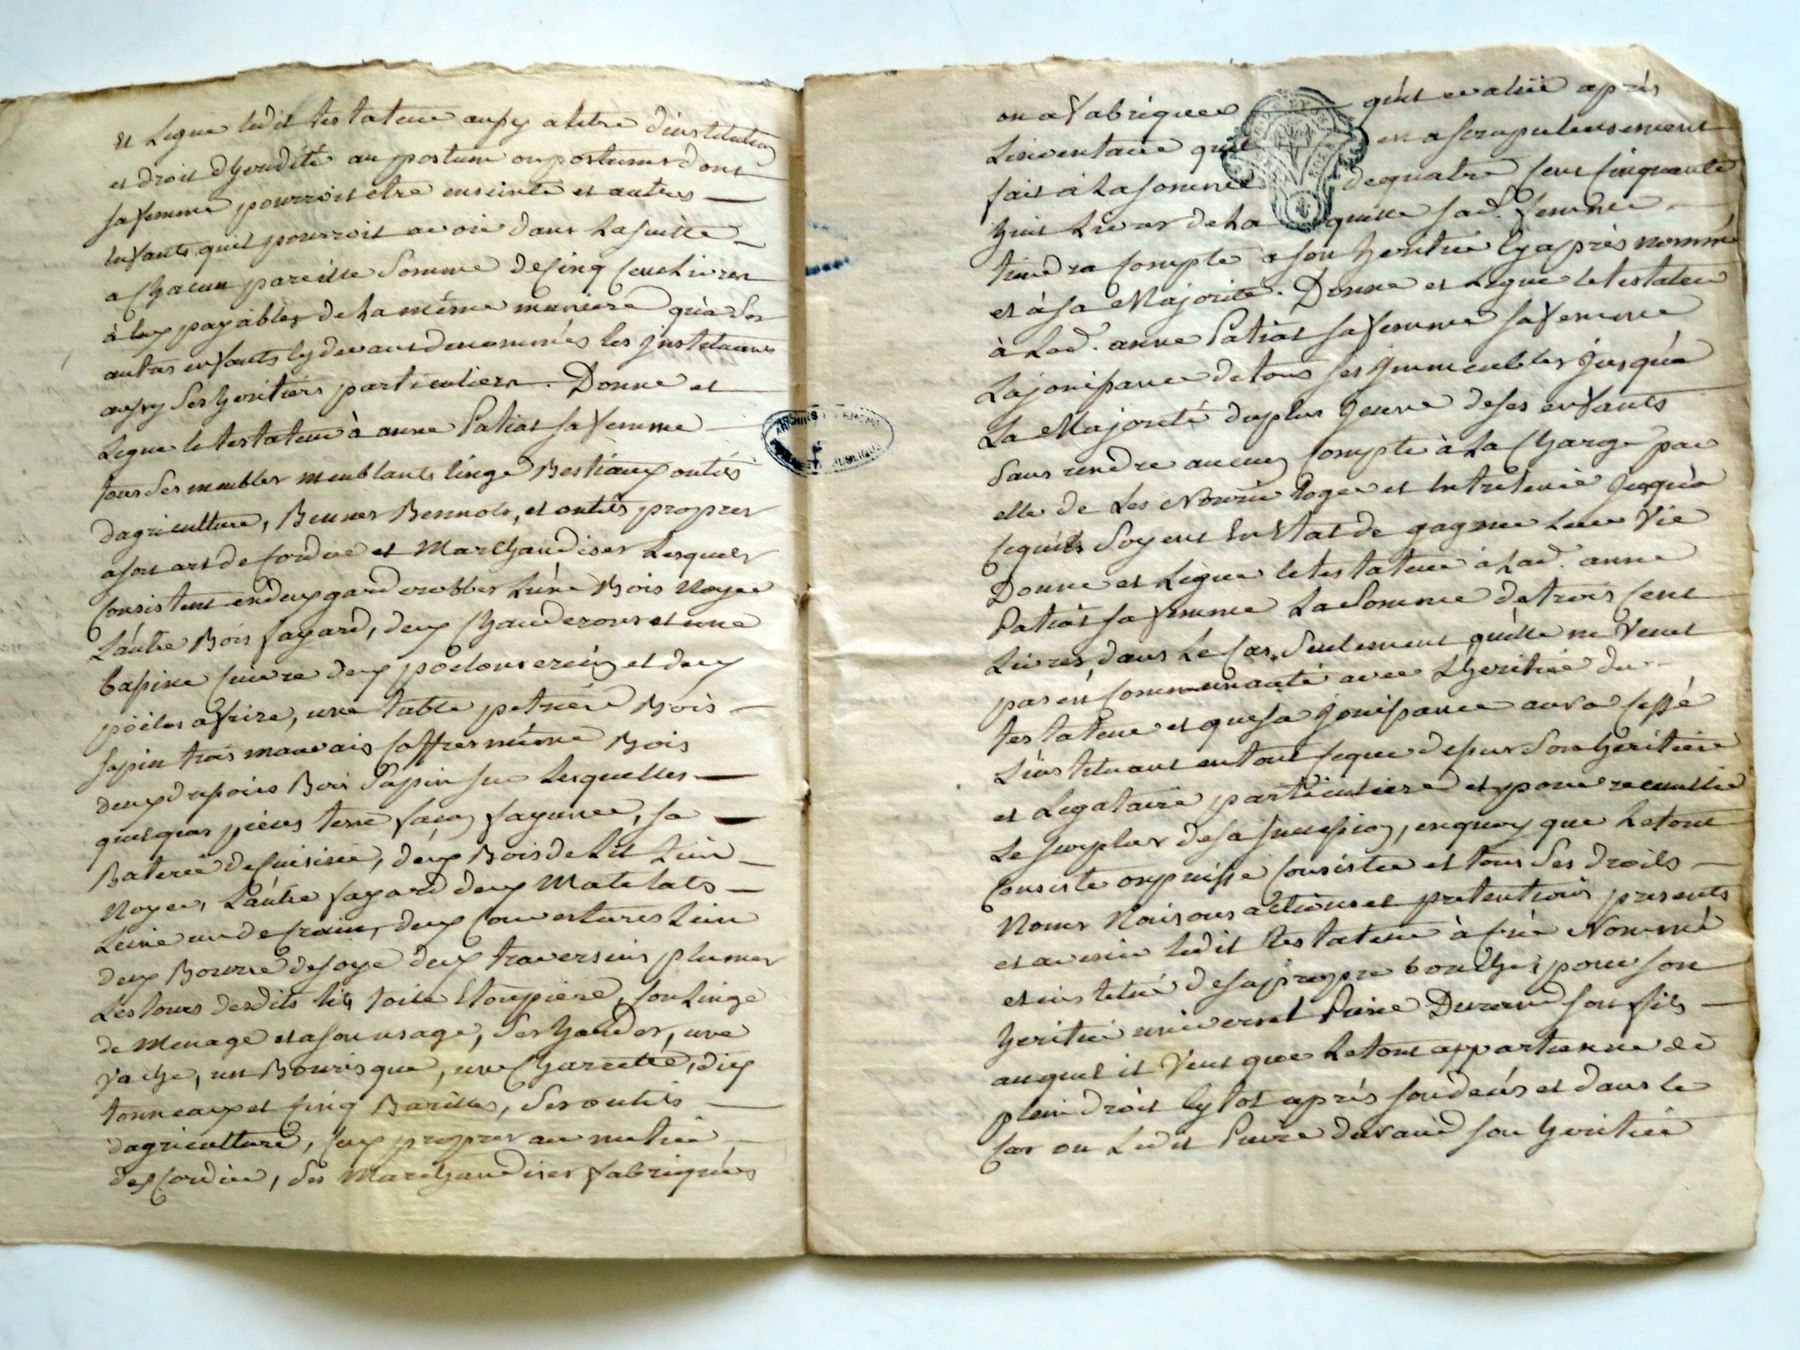 et Legue ledit testateur aussy a titre d'institution
et droit d'heredité au postume ou postumes dont
sa femme pourroit etre enceinte et autres
Enfants quil pourroit avoir dans La suitte
a Chacun pareille Somme de Cinq Cens Livres
à Eux payables de La même maniere qu'à Ses
autres enfants cy devant denommés les jnstituant
aussy Ses heritiers particuliers. Donne et
Legue le testateur à anne Patiat sa femme
tous Ses meubles meublants linge Bestiaux outils
dagriculture, Bennes Bennots, et outils propres
a son art de Cordier et Marchandises Lesquels
Consistent en deux garderobbes L'une Bois Noyer
L'autre Bois fayard, deux Chauderons et une
bassine Cuivre deux poëlons et deux
poëles a frire, une table petriere Bois
sapin trois mauvais Coffres même Bois
deux Bois Sapin sur Lesquelles
quelques pieces terre façon fayance, sa
Baterie de Cuisine, deux Bois de Lit L'un
Noyer, L'autre fayard deux Matelats
Laine un de Crain, deux Couvertures L'une
deux Bourre de soye deux traversins plumes
Les tours desdits lits toile Etoupiere, son Linge
de Menage et a son usage, Ses hardes, une
Vache, un Bourisque, une Charette, dix
tonneaux et Cinq Barilles, Ses outils
dagriculture, Ceux propres au metier
de Cordier, Ses Marchandises fabriquées
ou a fabriquer quil evalue après
L'inventaire quil en a scrupuleusement
fait à La somme de quatre Cent Cinquante
huit Livres de La quelle sad. femme
tiendra Compte a son heritier Cy après nommé
et à sa Majorité. Donne et Legue le testateur
à Lad. anne Patiat sa femme sa femme
La jouissance de tous ses jmmeubles jusqu'à
La Majorité du plus jeune de ses enfants
Sans rendre aucun Compte à La Charge par
elle de Les Nourrir Loger et Entretenir jusqu'à
Cequils Soyent En Etat de gagner Leur Vie
Donne et Legue le testateur à Lad. anne
Patiat sa femme La Somme de trois Cent
Livres, dans Le Cas Seulement qu'elle ne Veut
pas en Communauté avec L'heritier du
testateur et que sa jouissance aura Cessé
L'instituant en tout Ceque dessus Son heritiere
et Legataire particuliere et pour recueillir
Le surplus de sa succession, en quoy que Le tout
Consiste ou puisse Consister et tous Ses droits
Noms Raisons actions et pretentions presents
et avenir ledit testateur à Crée Nommé
et institué de sa propre bouche pour son
heritier universel Pierre Durand son fils
auquel il Veut que Le tout appartienne de
plein droit Sytot après son decès et dans le
Cas ou Ledit Pierre durand son heritier